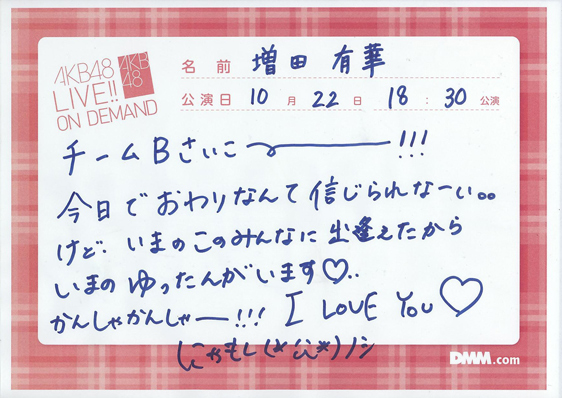 AKB48
LIVE!!
ON DEMAND
AKB
48
名前 増田 有華
公演日 10月 22日 18:30 公演
チームBさいこ〜!!!
今日でおわりなんて信じられなーい。。
けど、いまのこのみんなに出逢えたから
いまのゆったんがいます♡..
かんしゃかんしゃー!!! I LOVE YOU♡
DMM.com